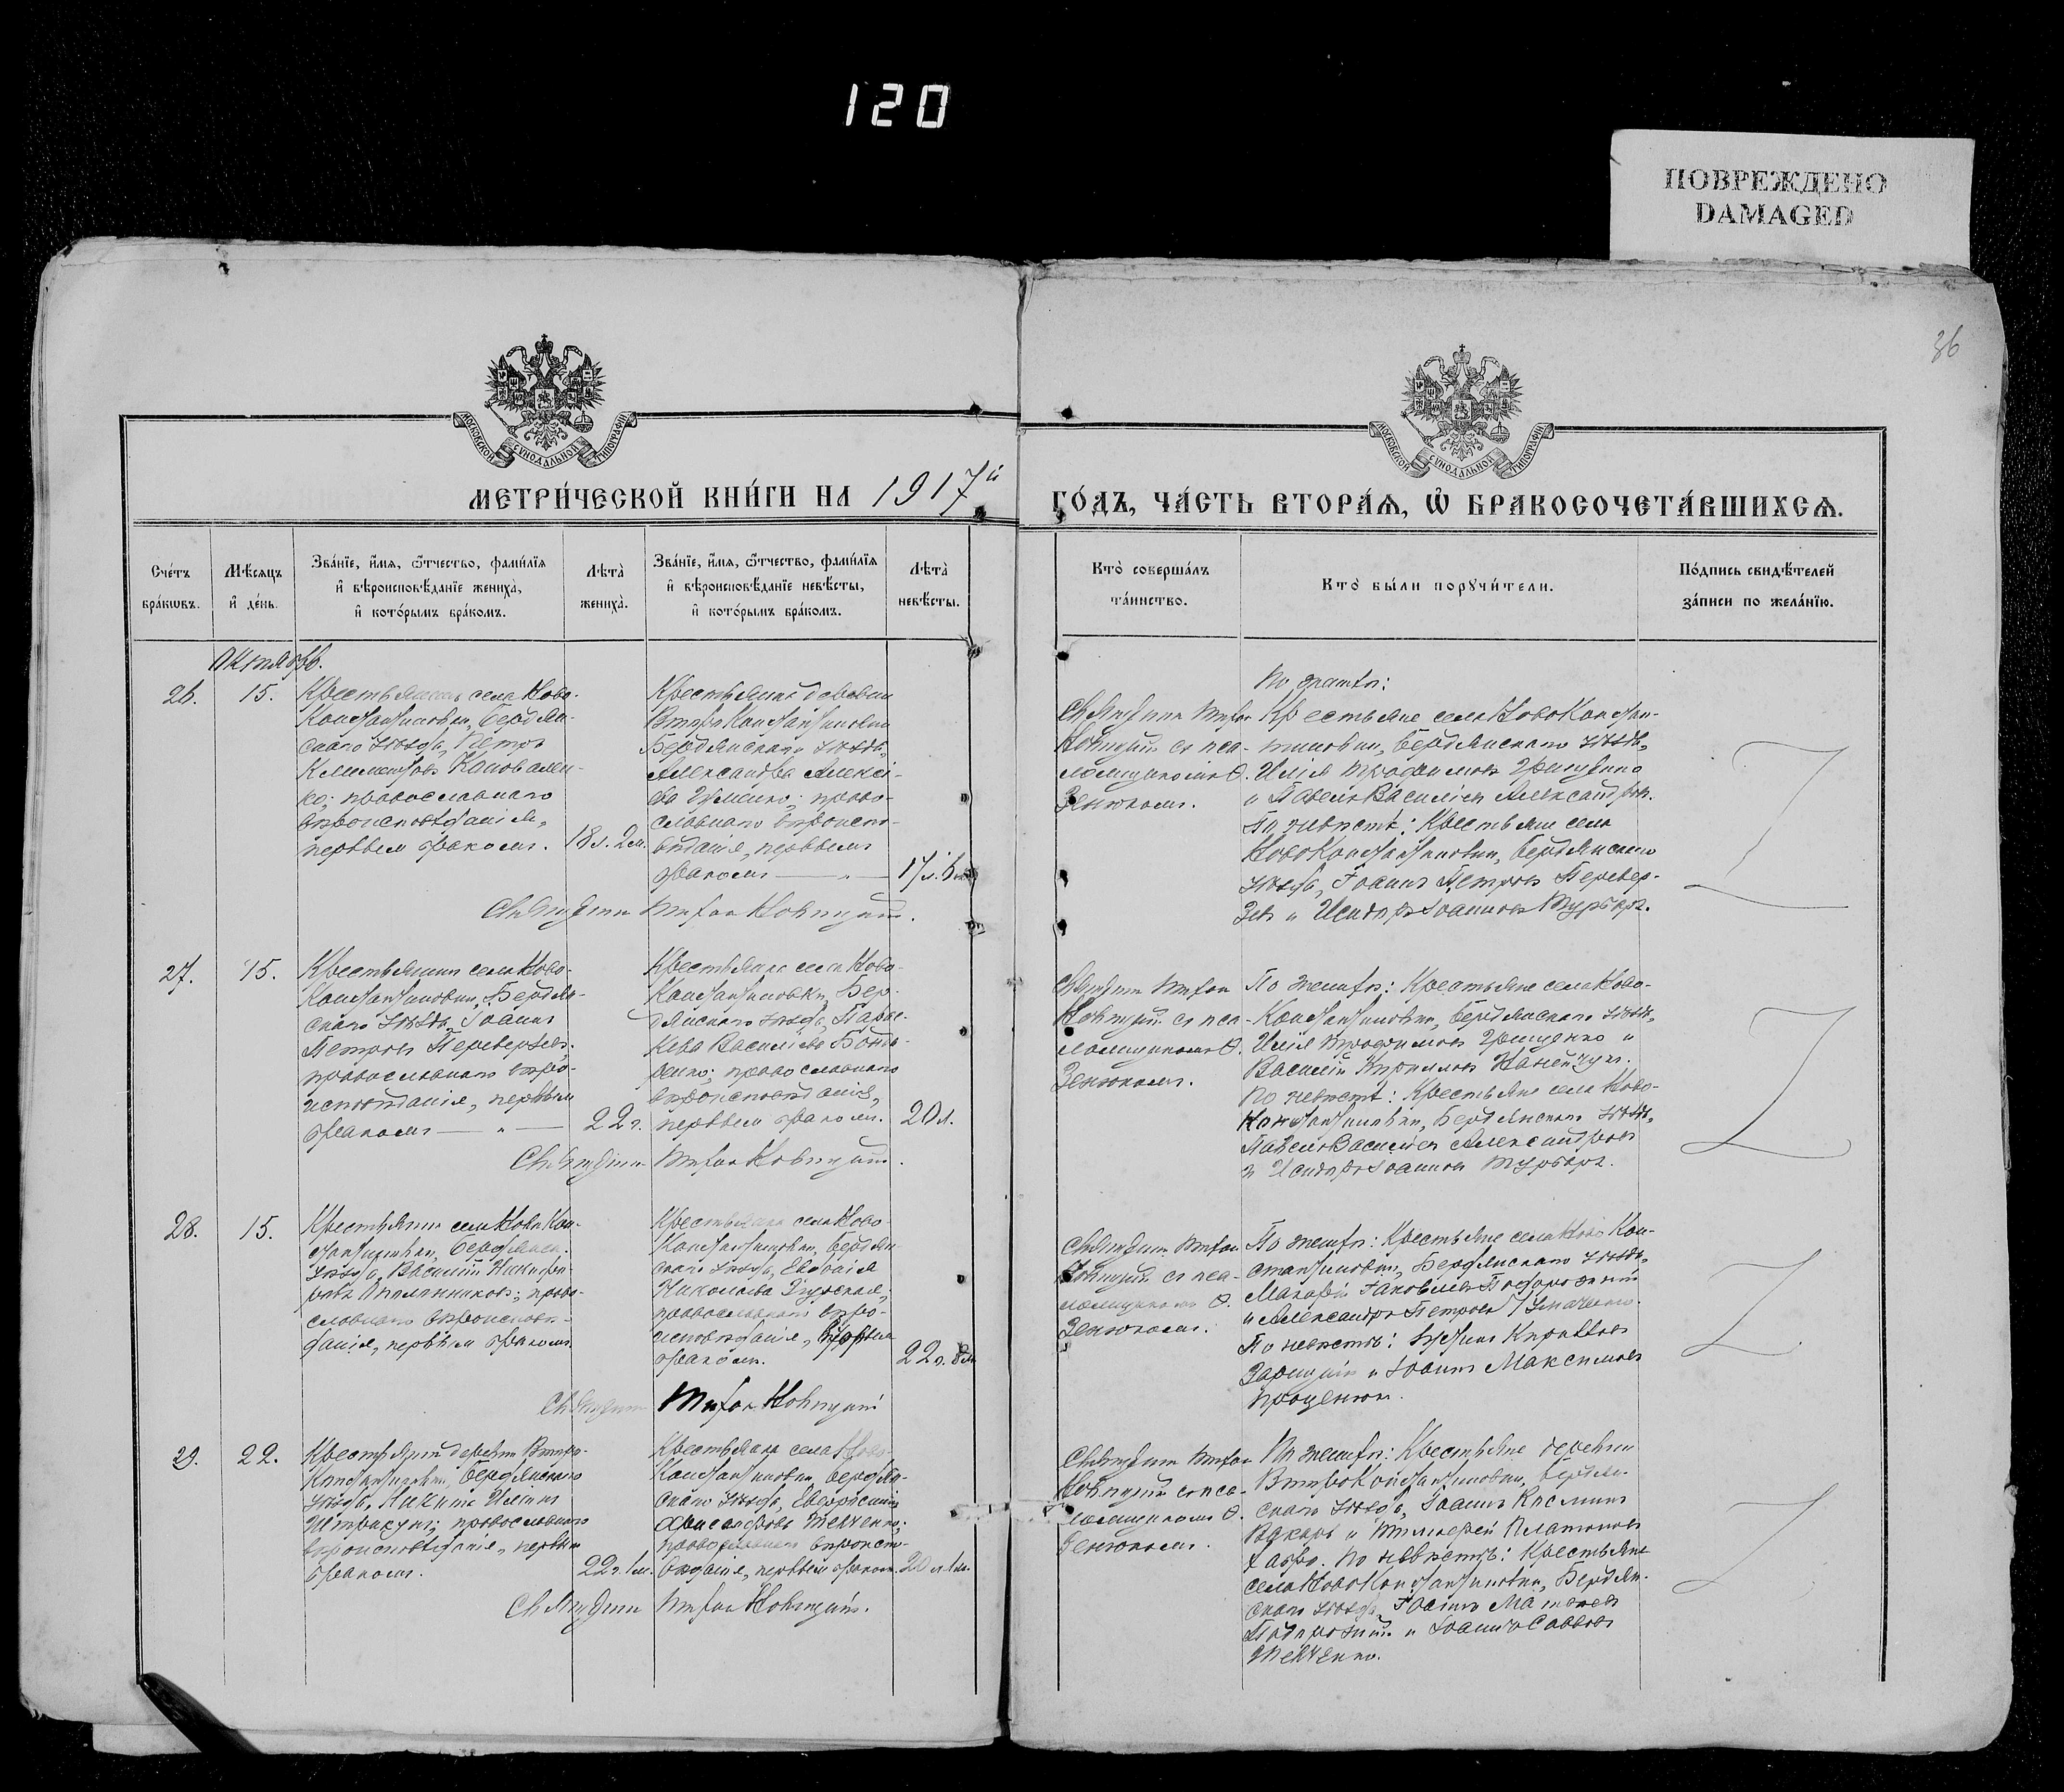 120
ПОВРЕЖДЕНО
DAMAGED
36
МОСКОВСКОЙ СѴНОДАЛЬНОЙ ТИПОГРАФІИ
МОСКОВСКОЙ СѴНОДАЛЬНОЙ ТИПОГРАФІИ
МЕТРИ́ЧЕСКОЙ КНИ́ГИ НА 1917й
ГО́ДЪ, ЧА́СТЬ ВТОРА́Ѧ, Ѡ҆ БРАКОСОЧЕТА́ВШИХСѦ.
Сче́тъ
бра́кѡвъ.
Мѣ́сѧцъ
и҆ де́нь.
Зва́нїе, и҆́мѧ, ѻ҆́тчество, фами́лїѧ
и҆ вѣроисповѣ́данїе жениха̀,
и҆ кото́рымъ бра́комъ.
Лѣта̀
жениха̀.
Зва́нїе, и҆́мѧ, ѻ҆́тчество, фами́лїѧ
и҆ вѣроисповѣ́данїе невѣ́сты,
и҆ кото́рымъ бра́комъ.
Лѣта̀
невѣ́сты.
Кто̀ соверша́лъ
та́инство.
Кто̀ бы́ли порꙋчи́тели.
По́дпись свидѣ́телей
за́писи по жела́нїю.
Октябрь.
26.
15.
Крестьянинъ села Ново-
Константиновки, Бердян-
скаго уѣзда, Петръ
Климентовъ Коновален-
ко; православнаго
вѣроисповѣданія,
первымъ бракомъ.
18л. 2м.
Крестьянка деревни
Второконстантиновки
Бердянскаго уѣзда,
Александра Алексі-
ева; право-
славнаго вѣроиспо-
вѣданія, первымъ
бракомъ
17л. 6м.
Священникъ Новицкій.
Священникъ
Новицкій съ пса-
ломщикомъ Ѳ.
Зенюкомъ.
По жениху:
Крестьяне села НовоКонстан-
тиновки, Бердянскаго уѣзда,
Илія Трофимовъ Грищенко
и Павелъ Василіевъ Александровъ.
По невѣстѣ: Крестьяне села
НовоКонстантиновки, Бердянскаго
уѣзда, Іоаннъ Петровъ Перевер-
зевъ и Исидоръ Іоанновъ Турбаръ.
27.
15.
Крестьянинъ села Ново-
Константиновки, Бердян-
скаго уѣзда, Іоаннъ
Петровъ Переверзевъ;
православнаго вѣро-
исповѣданія, первымъ
бракомъ
22г.
Крестьянка села Ново-
Константиновки, Бер-
дянскаго уѣзда, Парас-
кева Василіева Бонда-
ренко; православнаго
вѣроисповѣданія,
первымъ бракомъ.
20л.
Священникъ Новицкій.
Священникъ
Новицкій съ пса-
ломщикомъ Ѳ.
Зенюкомъ.
По жениху: Крестьяне села Ново-
Константиновки, Бердянскаго уѣзда,
Илія Трофимовъ Грищенко и
Василій Кирилловъ
По невѣстѣ: Крестьяне села Ново-
Константиновки, Бердянскаго уѣзда,
Павелъ Василіевъ Александровъ
и Исидоръ Іоанновъ Турбаръ.
28.
15.
Крестьянинъ села НовоКон-
стантиновки, Бердянск.
уѣзда, Василій Никифо-
ровъ; право-
славнаго вѣроисповѣ-
данія, первымъ бракомъ.
Крестьянка села Ново-
Константиновки, Бердян-
скаго уѣзда, Евдокія
Николаева;
православнаго вѣро-
исповѣданія, первымъ
бракомъ.
22г. 8м.
Священникъ Новицкій
Священникъ
Новицкій съ пса-
ломщикомъ Ѳ.
Зенюкомъ.
По жениху: Крестьяне села Ново Кон-
стантиновки, Бердянскаго уѣзда,
Макарій Іаковлевъ Подорожній
и Александръ Петровъ
По невѣстѣ:
Зарицкій и Іоаннъ Максимовъ
Проценко.
29.
22.
Крестьянинъ деревни Второ-
Константиновки, Бердянскаго
уѣзда, Никита Иліинъ
; православнаго
вѣроисповѣданія, первымъ
бракомъ.
22г. 1м.
Крестьянка села Ново-
Константиновки, Бердян-
скаго уѣзда, Евфросинія
Шевченко;
православнаго вѣроиспо-
вѣданія, первымъ бракомъ.
20л. 1м.
Священникъ Новицкій.
Священникъ
Новицкій съ пса-
ломщикомъ Ѳ.
Зенюкомъ.
По жениху: Крестьяне деревни
ВтороКонстантиновки, Бердян-
скаго уѣзда, Іоаннъ Косминъ
и Тимофей Платоновъ
По невѣстѣ: Крестьяне
села НовоКонстантиновки, Бердян-
скаго уѣзда, Іоаннъ
Подорожній и Іоаннъ Савовъ
Шевченко.